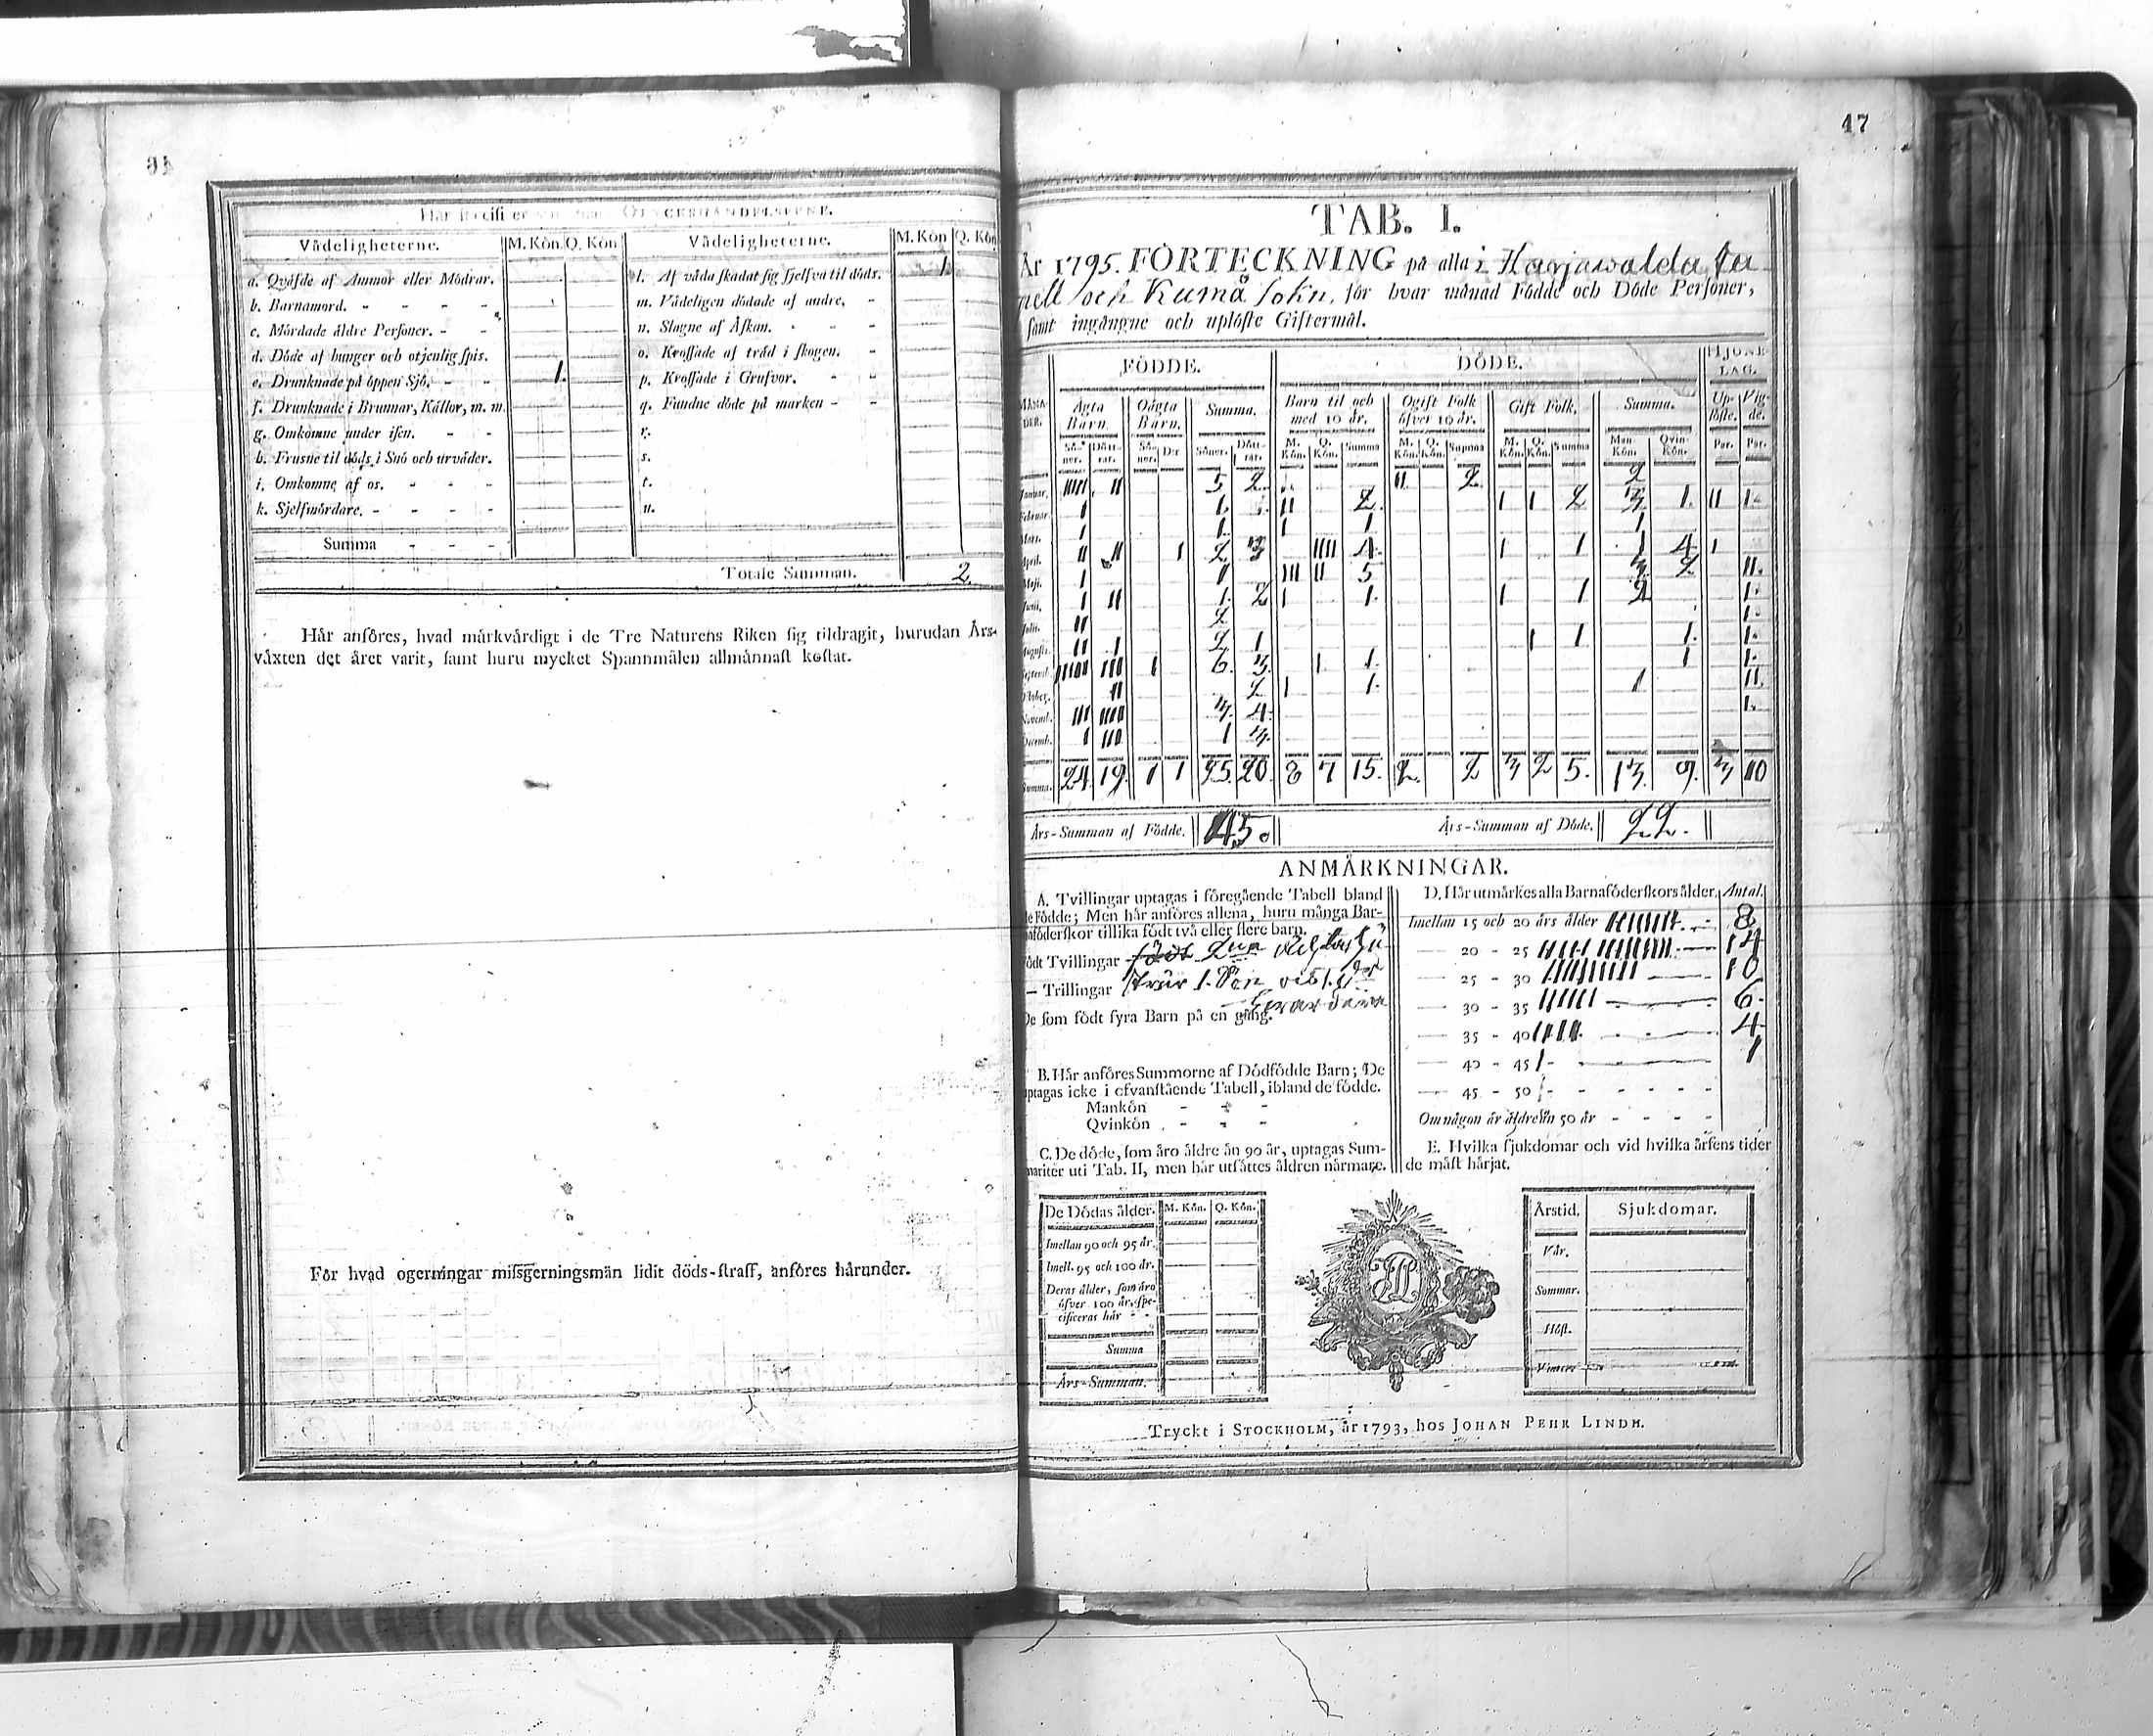 Vådeligheterne. M. Kön Q. Kön Vådeligheterne. M. Kön Q. Kön
a. Qväfde af Ammor eller Mödrar. l. Af våda skadat sig sjelfva til döds. 1.
b. Barnamord. - - - m. Vådeligen dödade af andre. -
c. Mördade äldre Personer. - - n. Slagne af Åskan. - - -
d. Döde af hunger och otjenlig spis. o. Krossade af träd i skogen. -
e. Drunknade på öppen Sjö. - - 1. p. Krossade i Grufvor. - -
f. Drunknade i Brunnar, Källor, m. m. q. Fundne döde på marken - -
g. Omkomne under isen. - - r.
h. Frusne til döds i Snö och urväder. s.
i. Omkomne af os. - - - t.
k. Sjelfmördare. - - - - u.
Summa - - -
Totale Summan. 2.
Här anföres, hvad märkvärdigt i de Tre Naturens Riken sig tildragit, hurudan Års-
växten det året varit, samt huru mycket Spannmålen allmännast kostat.
För hvad ogerningar missgerningsmän lidit döds-straff, anföres härunder.
47
TAB. I.
År 1795. FÖRTECKNING på alla i Harjawalda Ca
pell och Kumå sokn, för hvar månad Födde och Döde Personer,
samt ingångne och uplöste Giftermål.
FÖDDE. DÖDE. HJONE-
LAG.
MÅNA-
DER. Ägta
Barn. Oägta
Barn. Summa. Barn til och
med 10 år. Ogift Folk
öfver 10 år. Gift Folk. Summa. Up-
löste. Vig-
de.
Sö-
ner. Dött-
rar. Sö-
ner. D:r Söner. Dött-
rar. M.
Kön. Q.
Kön. Summa M.
Kön. Q.
Kön. Summa M.
Kön. Q.
Kön. Summa Man-
Kön. Qvin-
Kön. Par. Par.
Januar. IIIII II 5 2 II 2 2
Februar. I 1. II 2. I I 2 3 1. II I.
Mars. I 1. I 1 1
April. II II I 2 3 IIII 4. I 1 1 4. I
Maji. I 1 III II 5 3 2 II.
Junii. I II 1. 2 I 1. I 1 2 I.
Julii. II 2 I.
Augusti. II I 2 1 I 1 1. I.
Septemb. IIIII III I 6. 3. I 1. 1 I.
October. II 2 I 1. 1 II.
Novemb. III IIII 3. 4. I.
Decemb. I III 1 3.
Summa. 24 19. 1 1 25. 20. 8 7 15. 2. 2 3 2 5. 13. 9. 3 10
Års-Summan af Födde. 45. Års-Summan af Döde. 22.
ANMÄRKNINGAR.
A. Tvillingar uptagas i föregående Tabell bland
de Födde; Men här anföres allena, huru många Bar-
nafoderskor tillika födt två eller flere barn.
Födt Tvillingar
— Trillingar
De som födt fyra Barn på en gång.
B. Här anföres Summorne af Dödfödde Barn; De
uptagas icke i ofvanstående Tabell, ibland de födde.
Mankön - - -
Qvinkön - - -
C. De döde, som äro äldre än 90 år, uptagas Sum-
mariter uti Tab. II, men här utsättes åldren närmare.
D. Här utmärkes alla Barnaföderskors ålder. Antal.
Imellan 15 och 20 års ålder IIIIIIII. 8
— 20 - 25 14
— 25 - 30 IIIIIIIIII 10
— 30 - 35 IIIIII 6.
— 35 - 40 IIII. 4
— 40 - 45 I 1
— 45 - 50 - - - - -
Om någon är äldre än 50 år - - - -
E. Hvilka sjukdomar och vid hvilka årsens tider
de mäst härjat.
De Dödas ålder. M. Kön. Q. Kön.
Imellan 90 och 95 år.
Imell. 95 och 100 år.
Deras ålder, som äro
öfver 100 år, spe-
cificeras här - -
Summa
Års-Summan.
Årstid. Sjukdomar.
Vår.
Sommar.
Höst.
Vinter.
Tryckt i STOCKHOLM, år 1793, hos JOHAN PEHR LINDH.